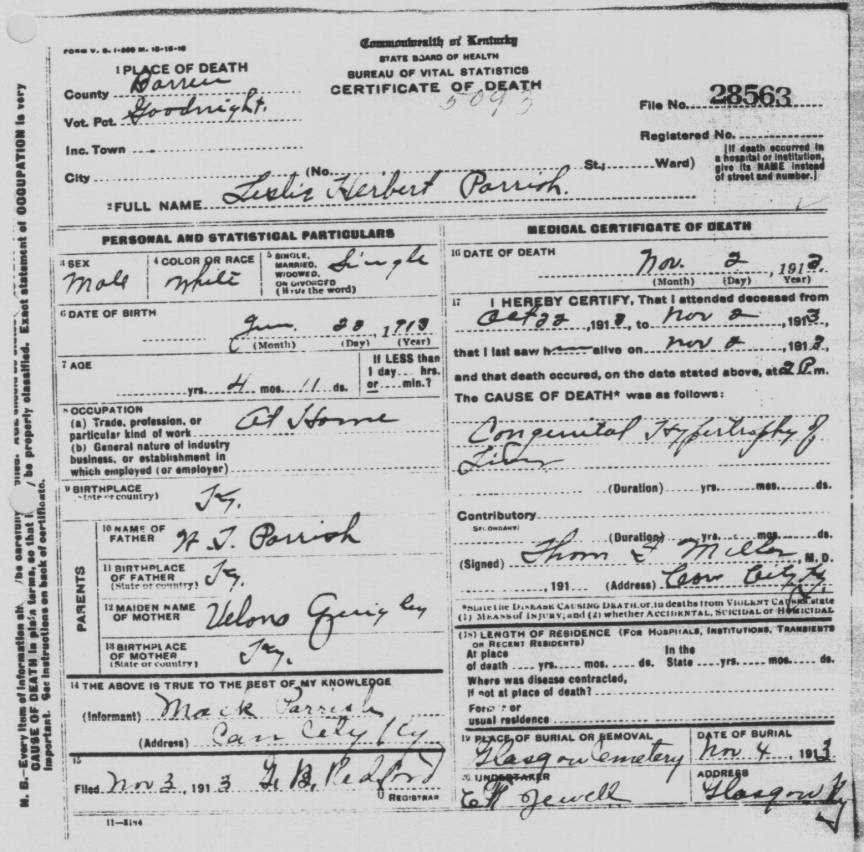 FORM V. S. 1-
Commonwealth of Kentucky
STATE BOARD OF HEALTH
BUREAU OF VITAL STATISTICS
CERTIFICATE OF DEATH
5093
1 PLACE OF DEATH
County Barren
Vot. Pct. Goodnight.
Inc. Town
City (No. St.; Ward)
File No. 28563
Registered No.
[If death occurred in
a hospital or institution,
give its NAME instead
of street and number.]
2 FULL NAME Leslie Herbert Parrish.
PERSONAL AND STATISTICAL PARTICULARS
3 SEX Male
4 COLOR OR RACE White
5 SINGLE, MARRIED, WIDOWED, OR DIVORCED (Write the word) Single
6 DATE OF BIRTH
22, 1913
(Month) (Day) (Year)
7 AGE
yrs. 4 mos. 11 ds.
If LESS than
1 day hrs.
or min.?
8 OCCUPATION
(a) Trade, profession, or
particular kind of work At Home
(b) General nature of industry
business, or establishment in
which employed (or employer)
9 BIRTHPLACE
(State or country) Ky.
PARENTS
10 NAME OF
FATHER Parrish
11 BIRTHPLACE
OF FATHER
(State or country) Ky.
12 MAIDEN NAME
OF MOTHER Quigley
13 BIRTHPLACE
OF MOTHER
(State or country) Ky.
14 THE ABOVE IS TRUE TO THE BEST OF MY KNOWLEDGE
(Informant) Mack Parrish
(Address) Cave City Ky
15
Filed Nov 3, 1913 G. B. Pedford
REGISTRAR
11—
MEDICAL CERTIFICATE OF DEATH
16 DATE OF DEATH
Nov. 2, 1913.
(Month) (Day) (Year)
17 I HEREBY CERTIFY, That I attended deceased from
Oct 22, 1913, to Nov 2, 1913,
that I last saw h alive on Nov 2, 1913,
and that death occured, on the date stated above, at 2 P m.
The CAUSE OF DEATH* was as follows:
Congenital Hypertrophy of
Liver
(Duration) yrs. mos. ds.
Contributory
SECONDARY
(Duration) yrs. mos. ds.
(Signed) Miller, M. D.
, 191 (Address) Cave City Ky
*State the DISEASE CAUSING DEATH, or, in deaths from VIOLENT CAUSES, state
(1) MEANS OF INJURY, and (2) whether ACCIDENTAL, SUICIDAL or HOMICIDAL
(18) LENGTH OF RESIDENCE (FOR HOSPITALS, INSTITUTIONS, TRANSIENTS
OR RECENT RESIDENTS)
At place
of death yrs. mos. ds.
In the
State yrs. mos. ds.
Where was disease contracted,
if not at place of death?
Former or
usual residence
19 PLACE OF BURIAL OR REMOVAL
Glasgow Cemetery
DATE OF BURIAL
Nov 4, 1913
20 UNDERTAKER
Jewell
ADDRESS
Glasgow Ky
N. B.—Every item of information be carefully be properly classified. Exact statement of OCCUPATION is very
CAUSE OF DEATH in plain terms, so that
important. See instructions on back of certificate.